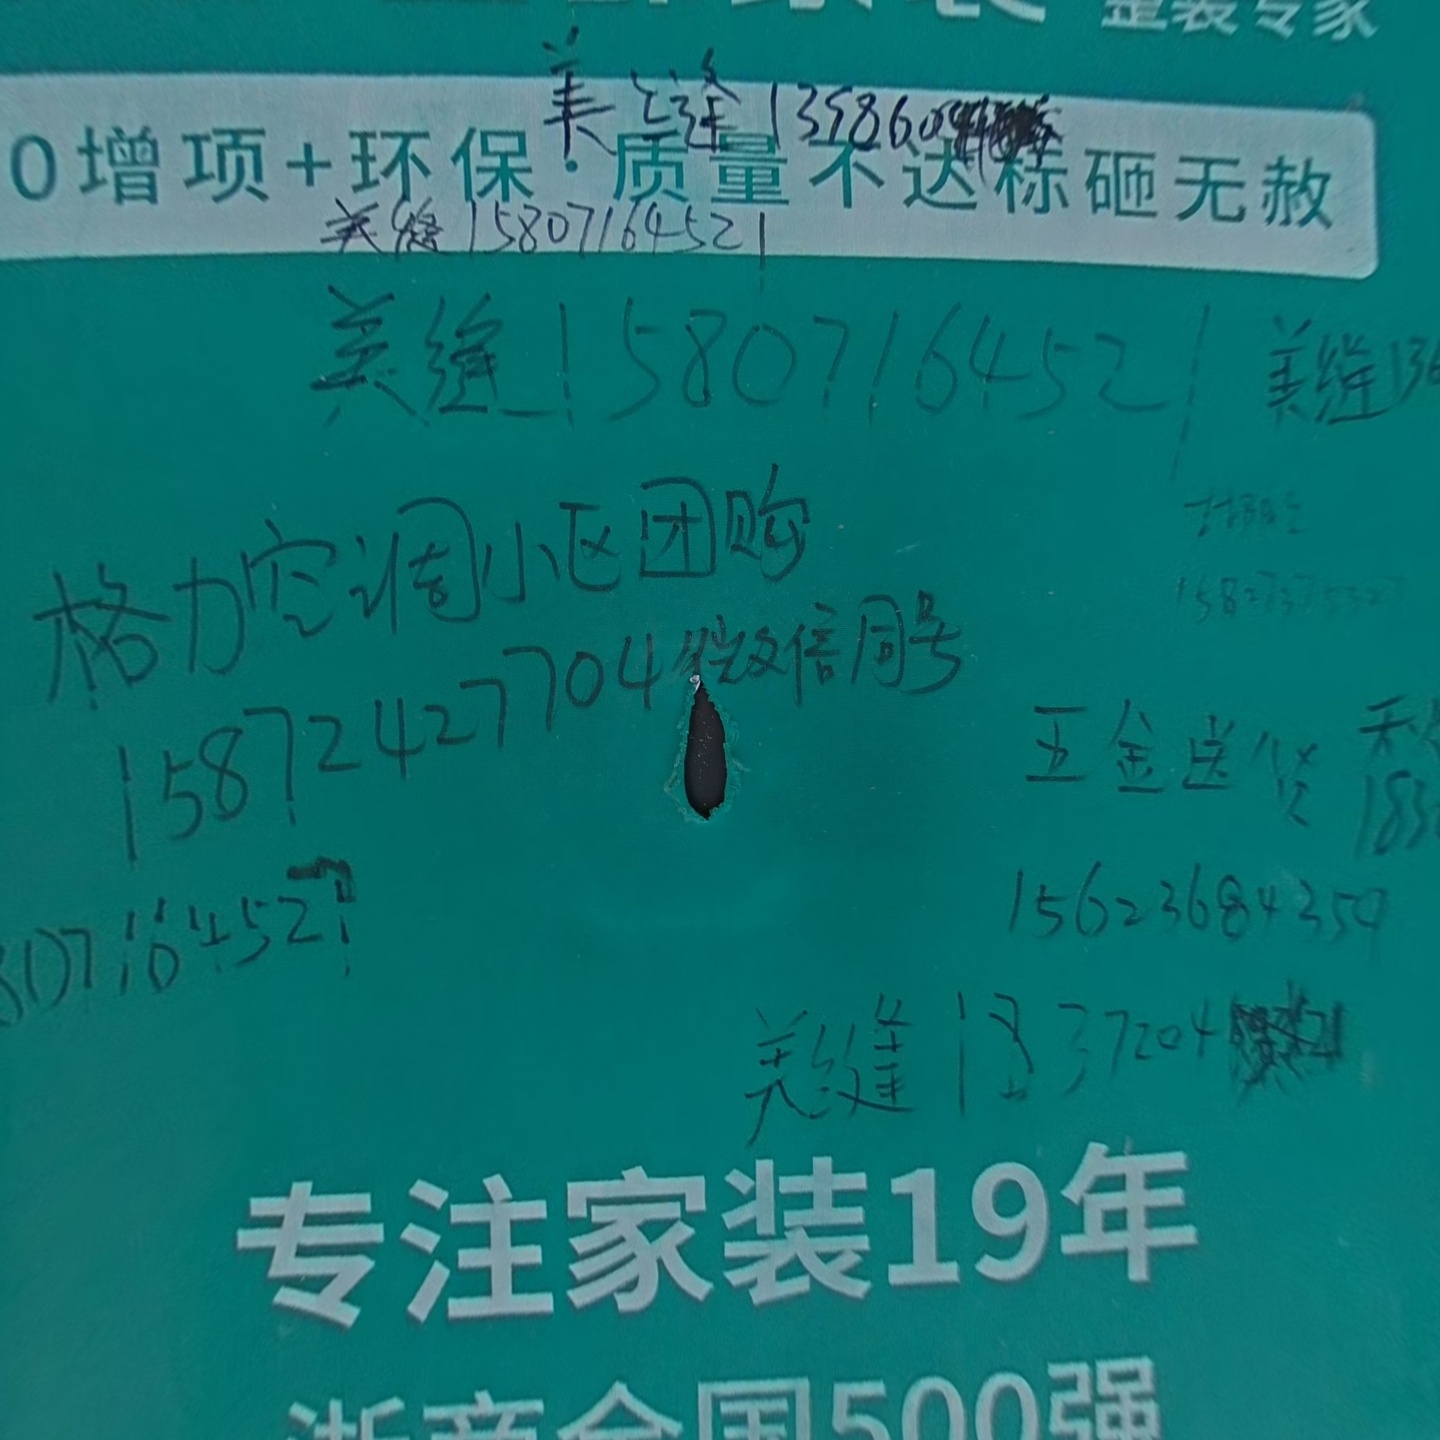 整装专家
美缝 1398604
0增项+环保·质量不达标砸无赦
美缝 15807164521
美缝 15807164521
美缝 136
格力空调小区团购
15872427704 微信同号
五金送货
183
15623684359
807164521
美缝 137204
专注家装19年
浙商全国500强